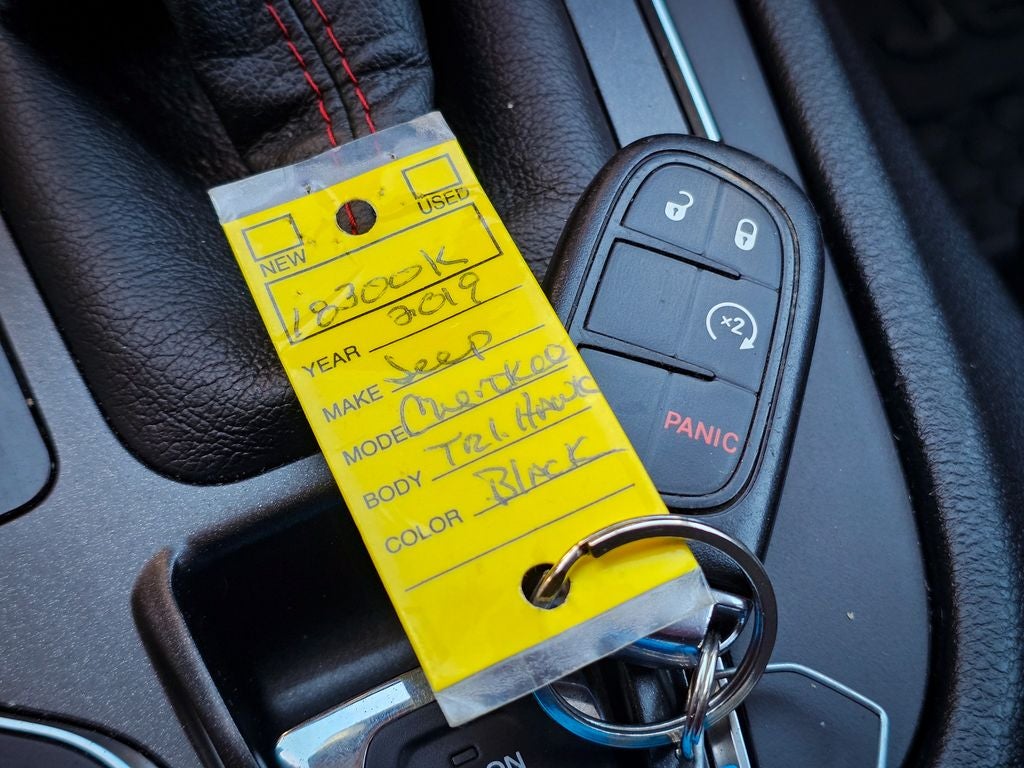 USED
NEW
18300K
YEAR 2019
MAKE Jeep
MODEL Cherokee
BODY TRL.HAWK
COLOR BlAcK
x2
PANIC
ON